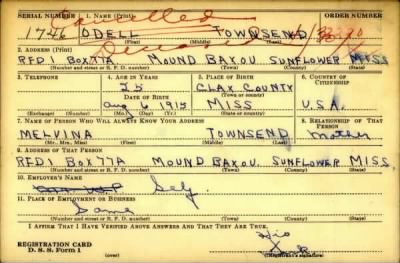 SERIAL NUMBER 1. NAME (Print) ORDER NUMBER
Cancelled
1746 ODELL TOWNSEND
2. ADDRESS (Print)
RFD1 BOX77A MOUND BAYOU SUNFLOWER MISS
(Number and street or R. F. D. number) (Town) (County) (State)
3. TELEPHONE 4. AGE IN YEARS 5. PLACE OF BIRTH 6. COUNTRY OF CITIZENSHIP
25 CLAY COUNTY
DATE OF BIRTH (Town or county)
Aug 6 1915 MISS U.S.A.
(Exchange) (Number) (Mo.) (Day) (Yr.) (State or country)
7. NAME OF PERSON WHO WILL ALWAYS KNOW YOUR ADDRESS 8. RELATIONSHIP OF THAT PERSON
MELVINA TOWNSEND Mother
(Mr., Mrs., Miss) (First) (Middle) (Last)
9. ADDRESS OF THAT PERSON
RFD1 BOX77A MOUND BAYOU SUNFLOWER MISS.
(Number and street or R. F. D. number) (Town) (County) (State)
10. EMPLOYER'S NAME
Self
11. PLACE OF EMPLOYMENT OR BUSINESS
Same
(Number and street or R. F. D. number) (Town) (County) (State)
I AFFIRM THAT I HAVE VERIFIED ABOVE ANSWERS AND THAT THEY ARE TRUE.
His
REGISTRATION CARD
D. S. S. Form 1 (Registrant's signature)